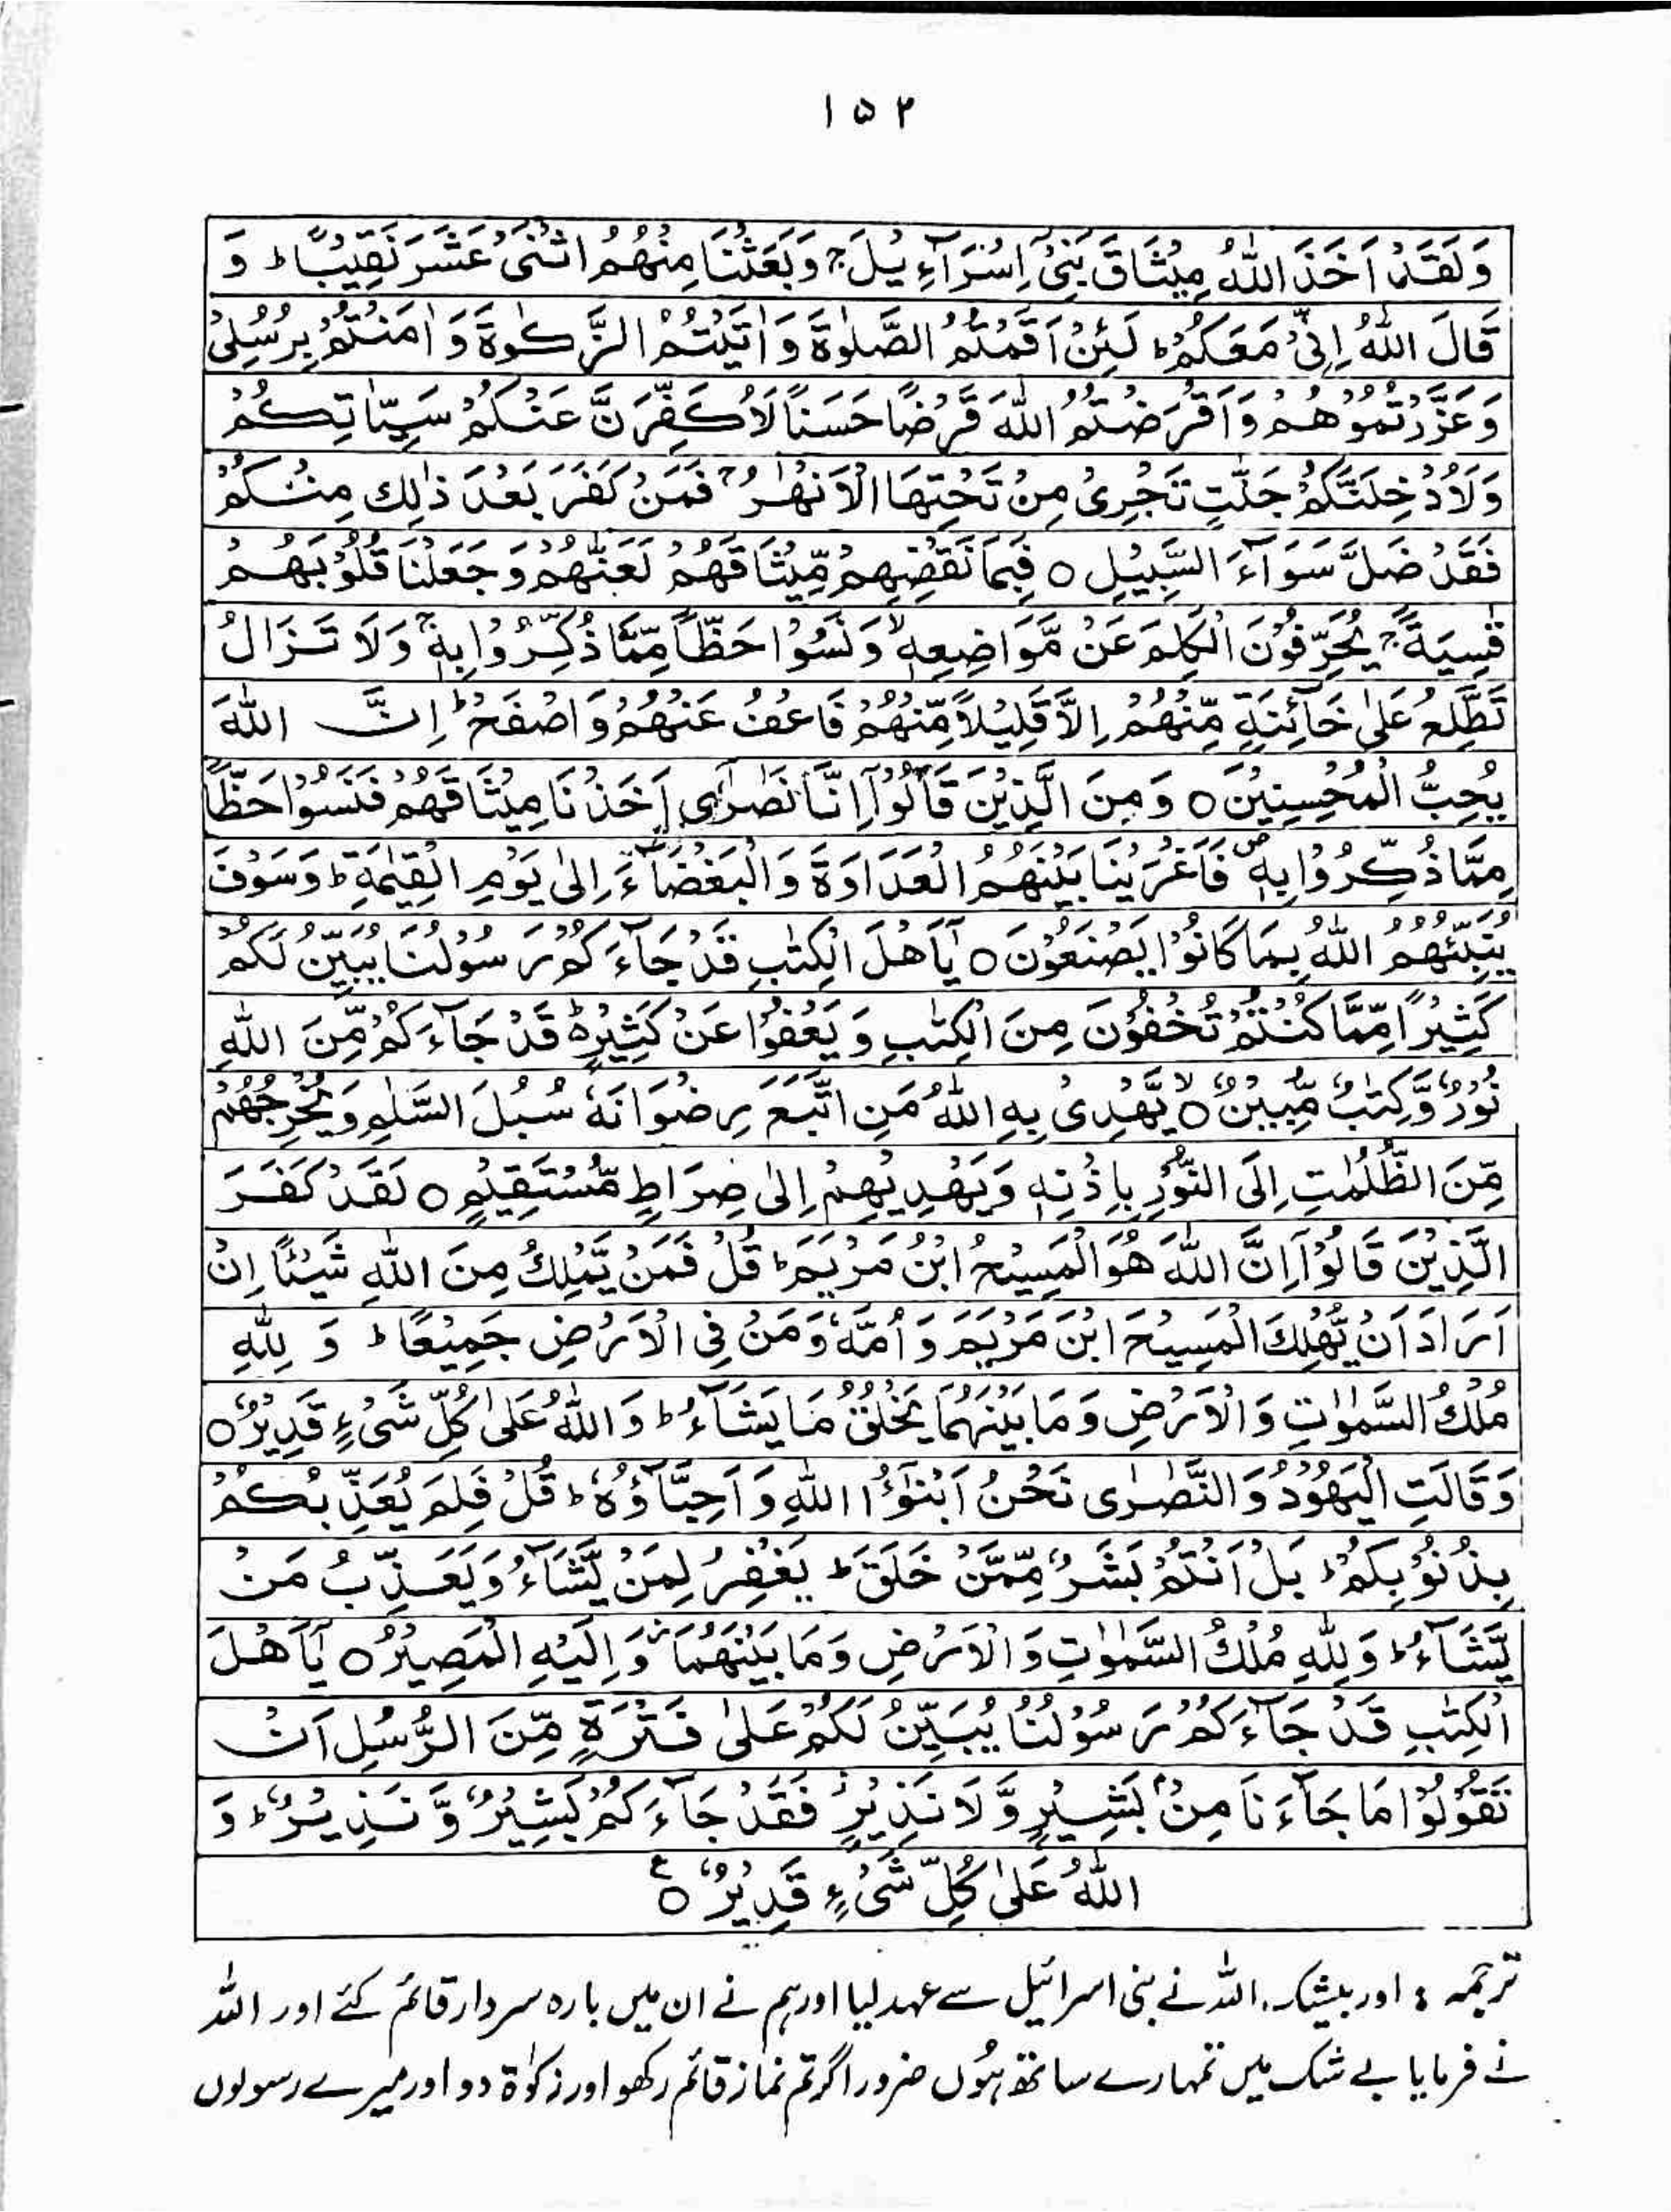 ۱۵۲
وَلَقَدْ اَخَذَ اللّٰهُ مِيْثَاقَ بَنِيْٓ اِسْرَآءِيْلَ ۚ وَبَعَثْنَا مِنْهُمُ اثْنَيْ عَشَرَ نَقِيْبًا ؕ وَ
قَالَ اللّٰهُ اِنِّيْ مَعَكُمْ ؕ لَئِنْ اَقَمْتُمُ الصَّلٰوةَ وَاٰتَيْتُمُ الزَّكٰوةَ وَاٰمَنْتُمْ بِرُسُلِيْ
وَعَزَّرْتُمُوْهُمْ وَاَقْرَضْتُمُ اللّٰهَ قَرْضًا حَسَنًا لَّاُكَفِّرَنَّ عَنْكُمْ سَيِّاٰتِكُمْ
وَلَاُدْخِلَنَّكُمْ جَنّٰتٍ تَجْرِيْ مِنْ تَحْتِهَا الْاَنْهٰرُ ۚ فَمَنْ كَفَرَ بَعْدَ ذٰلِكَ مِنْكُمْ
فَقَدْ ضَلَّ سَوَآءَ السَّبِيْلِ ۝ فَبِمَا نَقْضِهِمْ مِّيْثَاقَهُمْ لَعَنّٰهُمْ وَجَعَلْنَا قُلُوْبَهُمْ
قٰسِيَةً ۚ يُحَرِّفُوْنَ الْكَلِمَ عَنْ مَّوَاضِعِهٖ ۙ وَنَسُوْا حَظًّا مِّمَّا ذُكِّرُوْا بِهٖ ۚ وَلَا تَزَالُ
تَطَّلِعُ عَلٰى خَآئِنَةٍ مِّنْهُمْ اِلَّا قَلِيْلًا مِّنْهُمْ فَاعْفُ عَنْهُمْ وَاصْفَحْ ؕ اِنَّ اللّٰهَ
يُحِبُّ الْمُحْسِنِيْنَ ۝ وَمِنَ الَّذِيْنَ قَالُوْٓا اِنَّا نَصٰرٰٓى اَخَذْنَا مِيْثَاقَهُمْ فَنَسُوْا حَظًّا
مِّمَّا ذُكِّرُوْا بِهٖ ۪ فَاَغْرَيْنَا بَيْنَهُمُ الْعَدَاوَةَ وَالْبَغْضَآءَ اِلٰى يَوْمِ الْقِيٰمَةِ ؕ وَسَوْفَ
يُنَبِّئُهُمُ اللّٰهُ بِمَا كَانُوْا يَصْنَعُوْنَ ۝ يٰٓاَهْلَ الْكِتٰبِ قَدْ جَآءَكُمْ رَسُوْلُنَا يُبَيِّنُ لَكُمْ
كَثِيْرًا مِّمَّا كُنْتُمْ تُخْفُوْنَ مِنَ الْكِتٰبِ وَيَعْفُوْا عَنْ كَثِيْرٍ ؕ قَدْ جَآءَكُمْ مِّنَ اللّٰهِ
نُوْرٌ وَّكِتٰبٌ مُّبِيْنٌ ۝ۙ يَّهْدِيْ بِهِ اللّٰهُ مَنِ اتَّبَعَ رِضْوَانَهٗ سُبُلَ السَّلٰمِ وَيُخْرِجُهُمْ
مِّنَ الظُّلُمٰتِ اِلَى النُّوْرِ بِاِذْنِهٖ وَيَهْدِيْهِمْ اِلٰى صِرَاطٍ مُّسْتَقِيْمٍ ۝ لَقَدْ كَفَرَ
الَّذِيْنَ قَالُوْٓا اِنَّ اللّٰهَ هُوَ الْمَسِيْحُ ابْنُ مَرْيَمَ ؕ قُلْ فَمَنْ يَّمْلِكُ مِنَ اللّٰهِ شَيْـًٔا اِنْ
اَرَادَ اَنْ يُّهْلِكَ الْمَسِيْحَ ابْنَ مَرْيَمَ وَاُمَّهٗ وَمَنْ فِى الْاَرْضِ جَمِيْعًا ؕ وَ لِلّٰهِ
مُلْكُ السَّمٰوٰتِ وَالْاَرْضِ وَمَا بَيْنَهُمَا يَخْلُقُ مَا يَشَآءُ ؕ وَاللّٰهُ عَلٰى كُلِّ شَيْءٍ قَدِيْرٌ ۝
وَقَالَتِ الْيَهُوْدُ وَالنَّصٰرٰى نَحْنُ اَبْنٰٓؤُا اللّٰهِ وَاَحِبَّآؤُهٗ ؕ قُلْ فَلِمَ يُعَذِّبُكُمْ
بِذُنُوْبِكُمْ ؕ بَلْ اَنْتُمْ بَشَرٌ مِّمَّنْ خَلَقَ ؕ يَغْفِرُ لِمَنْ يَّشَآءُ وَيُعَذِّبُ مَنْ
يَّشَآءُ ؕ وَلِلّٰهِ مُلْكُ السَّمٰوٰتِ وَالْاَرْضِ وَمَا بَيْنَهُمَا ؗ وَاِلَيْهِ الْمَصِيْرُ ۝ يٰٓاَهْلَ
الْكِتٰبِ قَدْ جَآءَكُمْ رَسُوْلُنَا يُبَيِّنُ لَكُمْ عَلٰى فَتْرَةٍ مِّنَ الرُّسُلِ اَنْ
تَقُوْلُوْا مَا جَآءَنَا مِنْۢ بَشِيْرٍ وَّلَا نَذِيْرٍ ؗ فَقَدْ جَآءَكُمْ بَشِيْرٌ وَّنَذِيْرٌ ؕ وَ
اللّٰهُ عَلٰى كُلِّ شَيْءٍ قَدِيْرٌ ۝ ع
ترجمہ : اور بیشک اللہ نے بنی اسرائیل سے عہد لیا اور ہم نے ان میں بارہ سردار قائم کئے اور اللہ
نے فرمایا بے شک میں تمہارے ساتھ ہُوں ضرور اگر تم نماز قائم رکھو اور زکوٰۃ دو اور میرے رسولوں